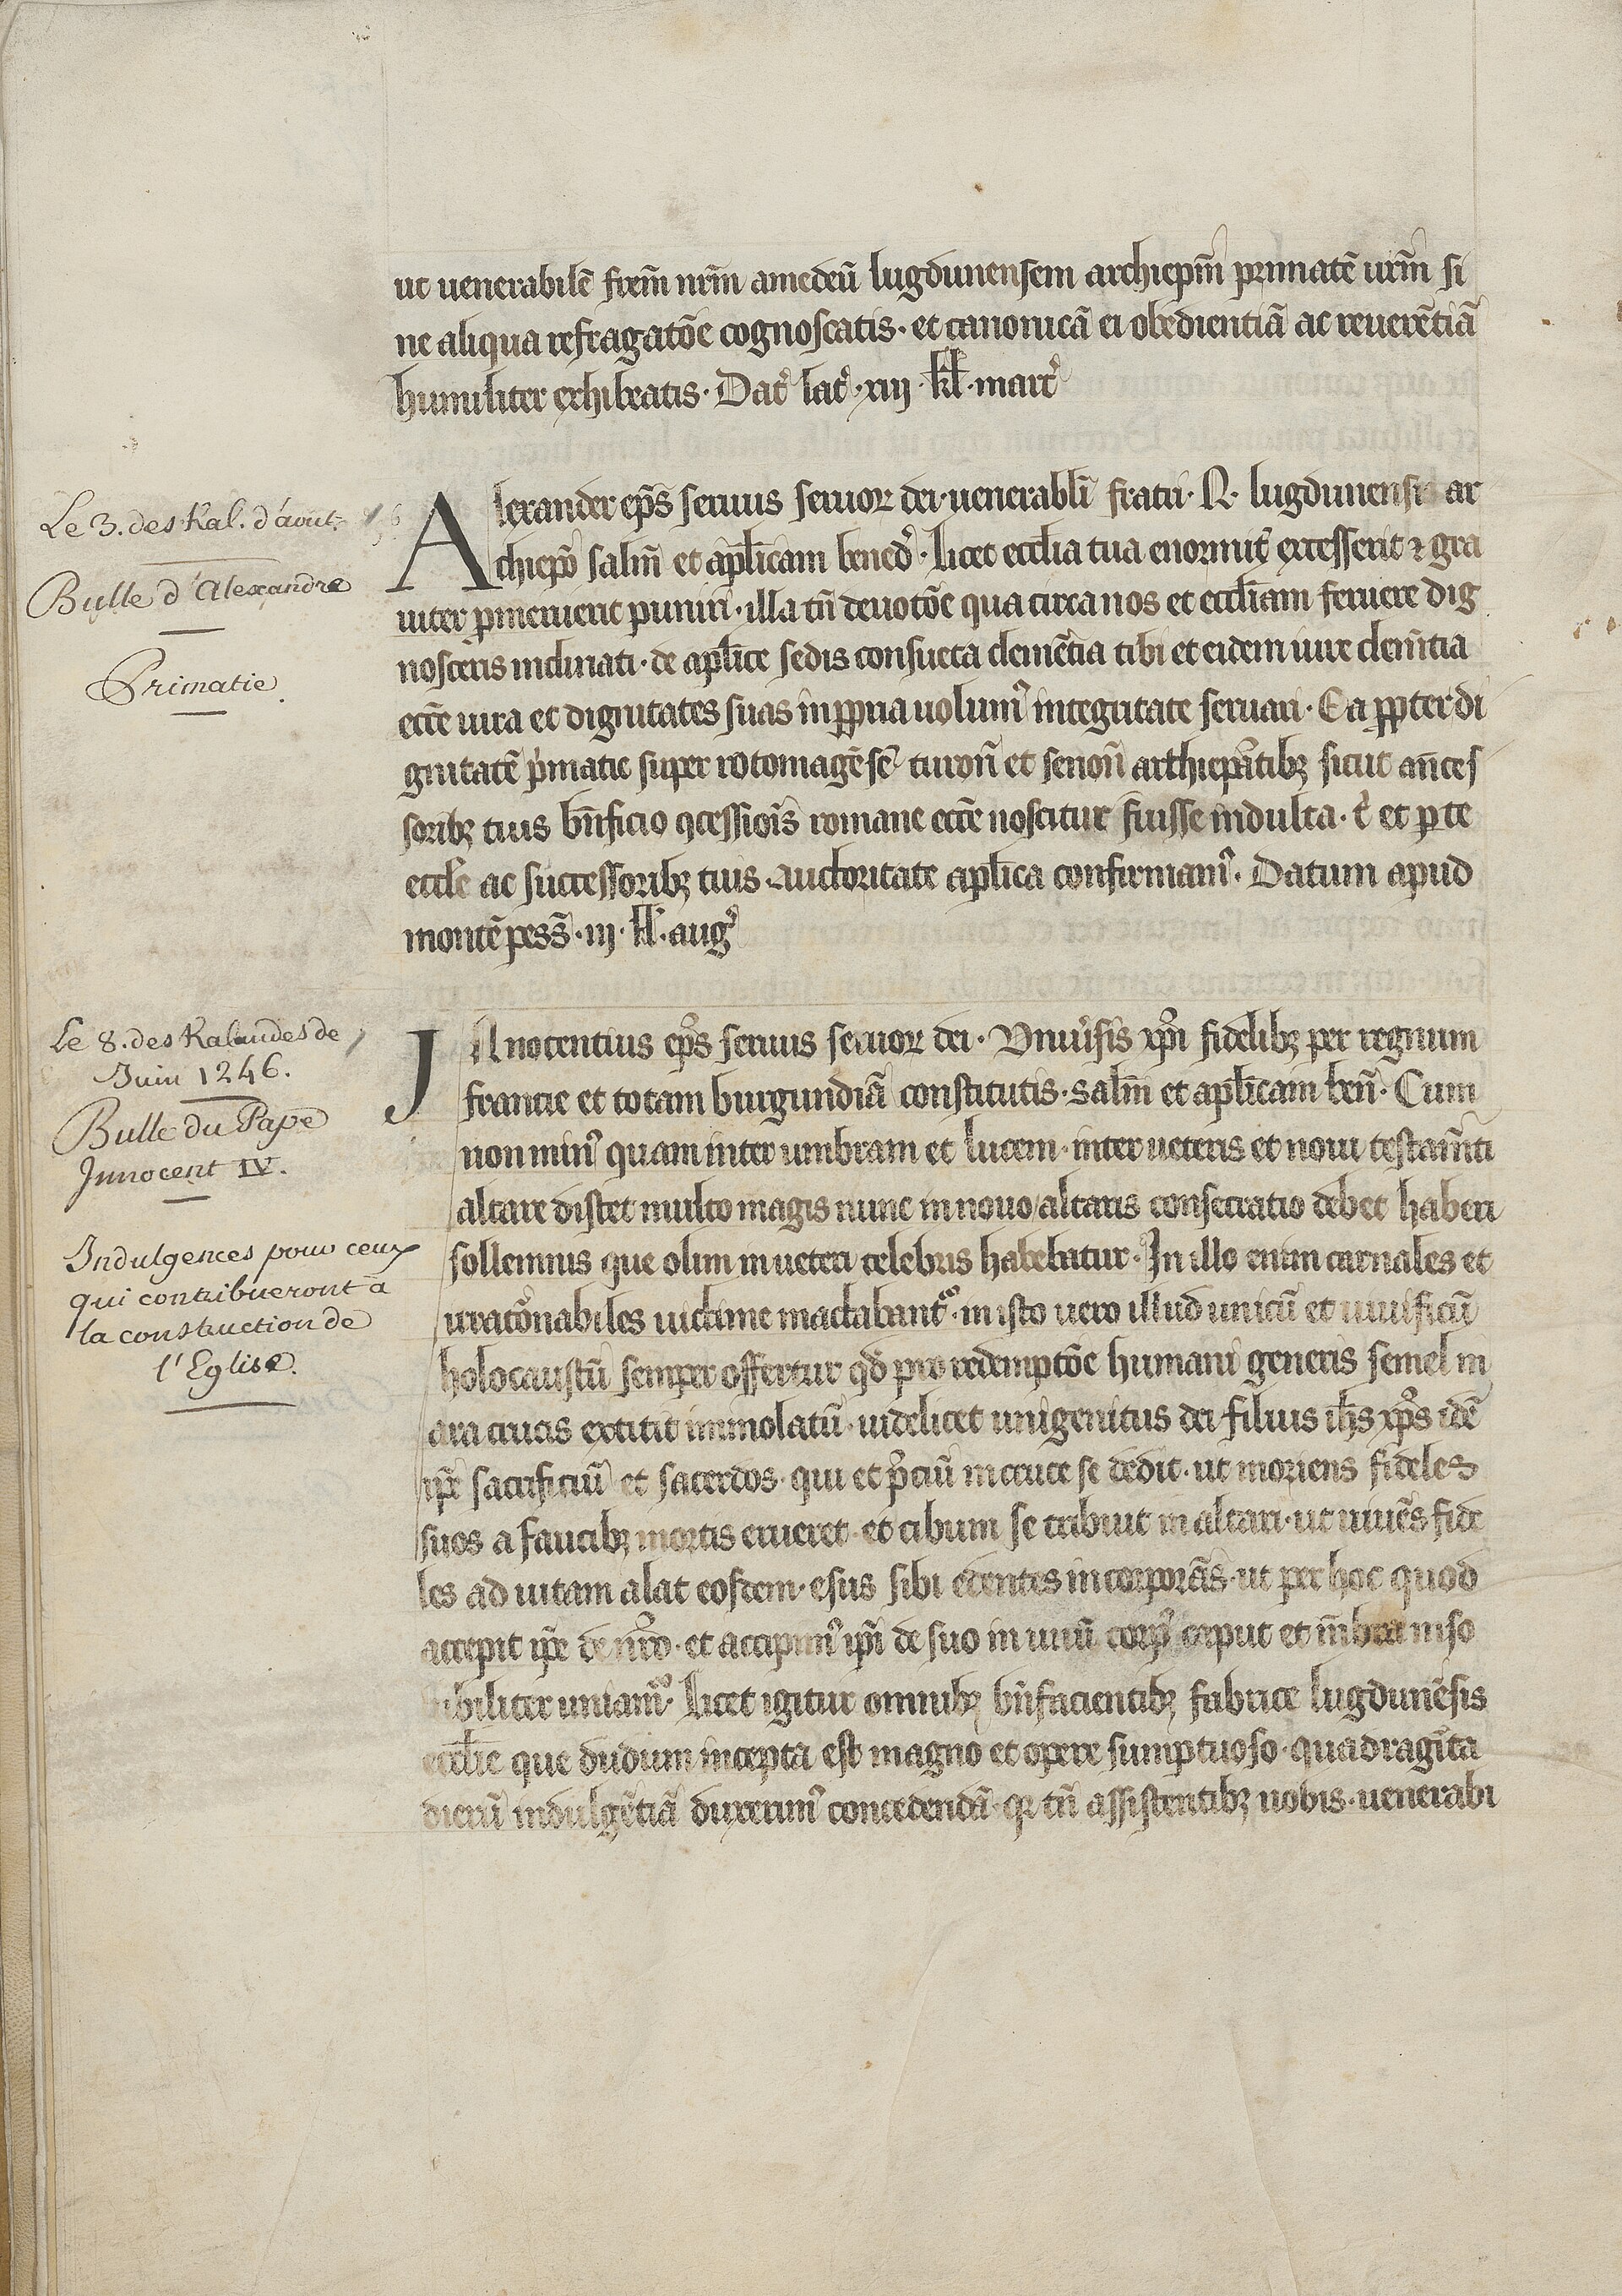 ut uenerabilē frēm nrm̄ amedeū lugdunensem archiepm̄ primatē urm̄ si
ne aliqua refragatōe cognoscatis· et canonicā ei obedientiā ac reuerētiā
humiliter exhibeatis· Dat̉ lat̉· xiij· kl̄· marc̉
Le 3. des Kal. d'aout.
Bulle d'Alexandre
Primatie.
Alexander ep̄s seruus seruoꝝ dei· uenerabli̅ fratri· N· lugdunensi ar
chiepō salm̄ et aplīcam bened̉· Licet ecclia tua enormit̉ excesserit ⁊ gra
uiter ꝓmeruerit puniri· illa tn̄ deuotōe qua circa nos et eccliam feruere dig
nosceris inclinati· de aplīce sedis consueta clemētia tibi et eidem iure
ecce iura et dignitates suas in ꝑpetua uolum᾽ integritate seruari· Ea ꝓpter di
gnitatē pͥmatie super rotomagēsē turoñ et senoñ archiepātibꝫ sicut añces
soribꝫ tuis bn̄ficio ꝯcessiōis romane ecce noscitur fuisse indulta· t̉ et per te
eccle ac successoribꝫ tuis auctoritate aplīca confirmam᾽· Datum apud
montē pess̄· iij· kl̄· aug᾽
Le 8. des Kalendes de
Juin 1246.
Bulle du Pape
Innocent IV.
Indulgences pour ceux
qui contribueront à
la construction de
l'Eglise.
JNnocentius ep̄s seruus seruoꝝ dei· Vniu̓sis xp̄i fidelibꝫ per regnum
francie et totam burgundiā constitutis· salm̄ et aplīcam beñ· Cum
non min᾽ quam inter umbram et lucem· inter ueteris et noui testam̄ti
altare distet multo magis nunc in nouo altaris consecratio debet haberi
sollemnis que olim in ueteri celebris habebatur· In illo enim carnales et
irratōnabiles uictime mactabant᾽· in isto uero illud unicū et uiuificū
holocaustū semper offertur qd̄ pro redemptōe humani generis semel in
ara crucis extitit immolatū· uidelicet unigenitus dei filius ihs̄ xp̄s idē
ip̄e sacrificiū et sacerdos· qui et pͥciū in cruce se dedit· ut moriens fideles
suos a faucibꝫ mortis erueret· et cibum se tribuit in altari· ut uiuēs fide
les ad uitam alat eosdem· esus sibi edentes incorporās· ut per hoc quod
accepit ip̄e de nr̄o· et accipim᾽ ip̄i de suo in unū corp᾽ caput et m̄bra inso
biliter uniam᾽· Licet igitur omnibꝫ bn̄facientibꝫ fabrice lugdunēsis
ecclīe que dudum incepta est magno et opere sumptuoso· quadragīta
dierū indulgētiā duxerim᾽ concedendā· qꝛ tn̄ assistentibꝫ nobis· uenerabi